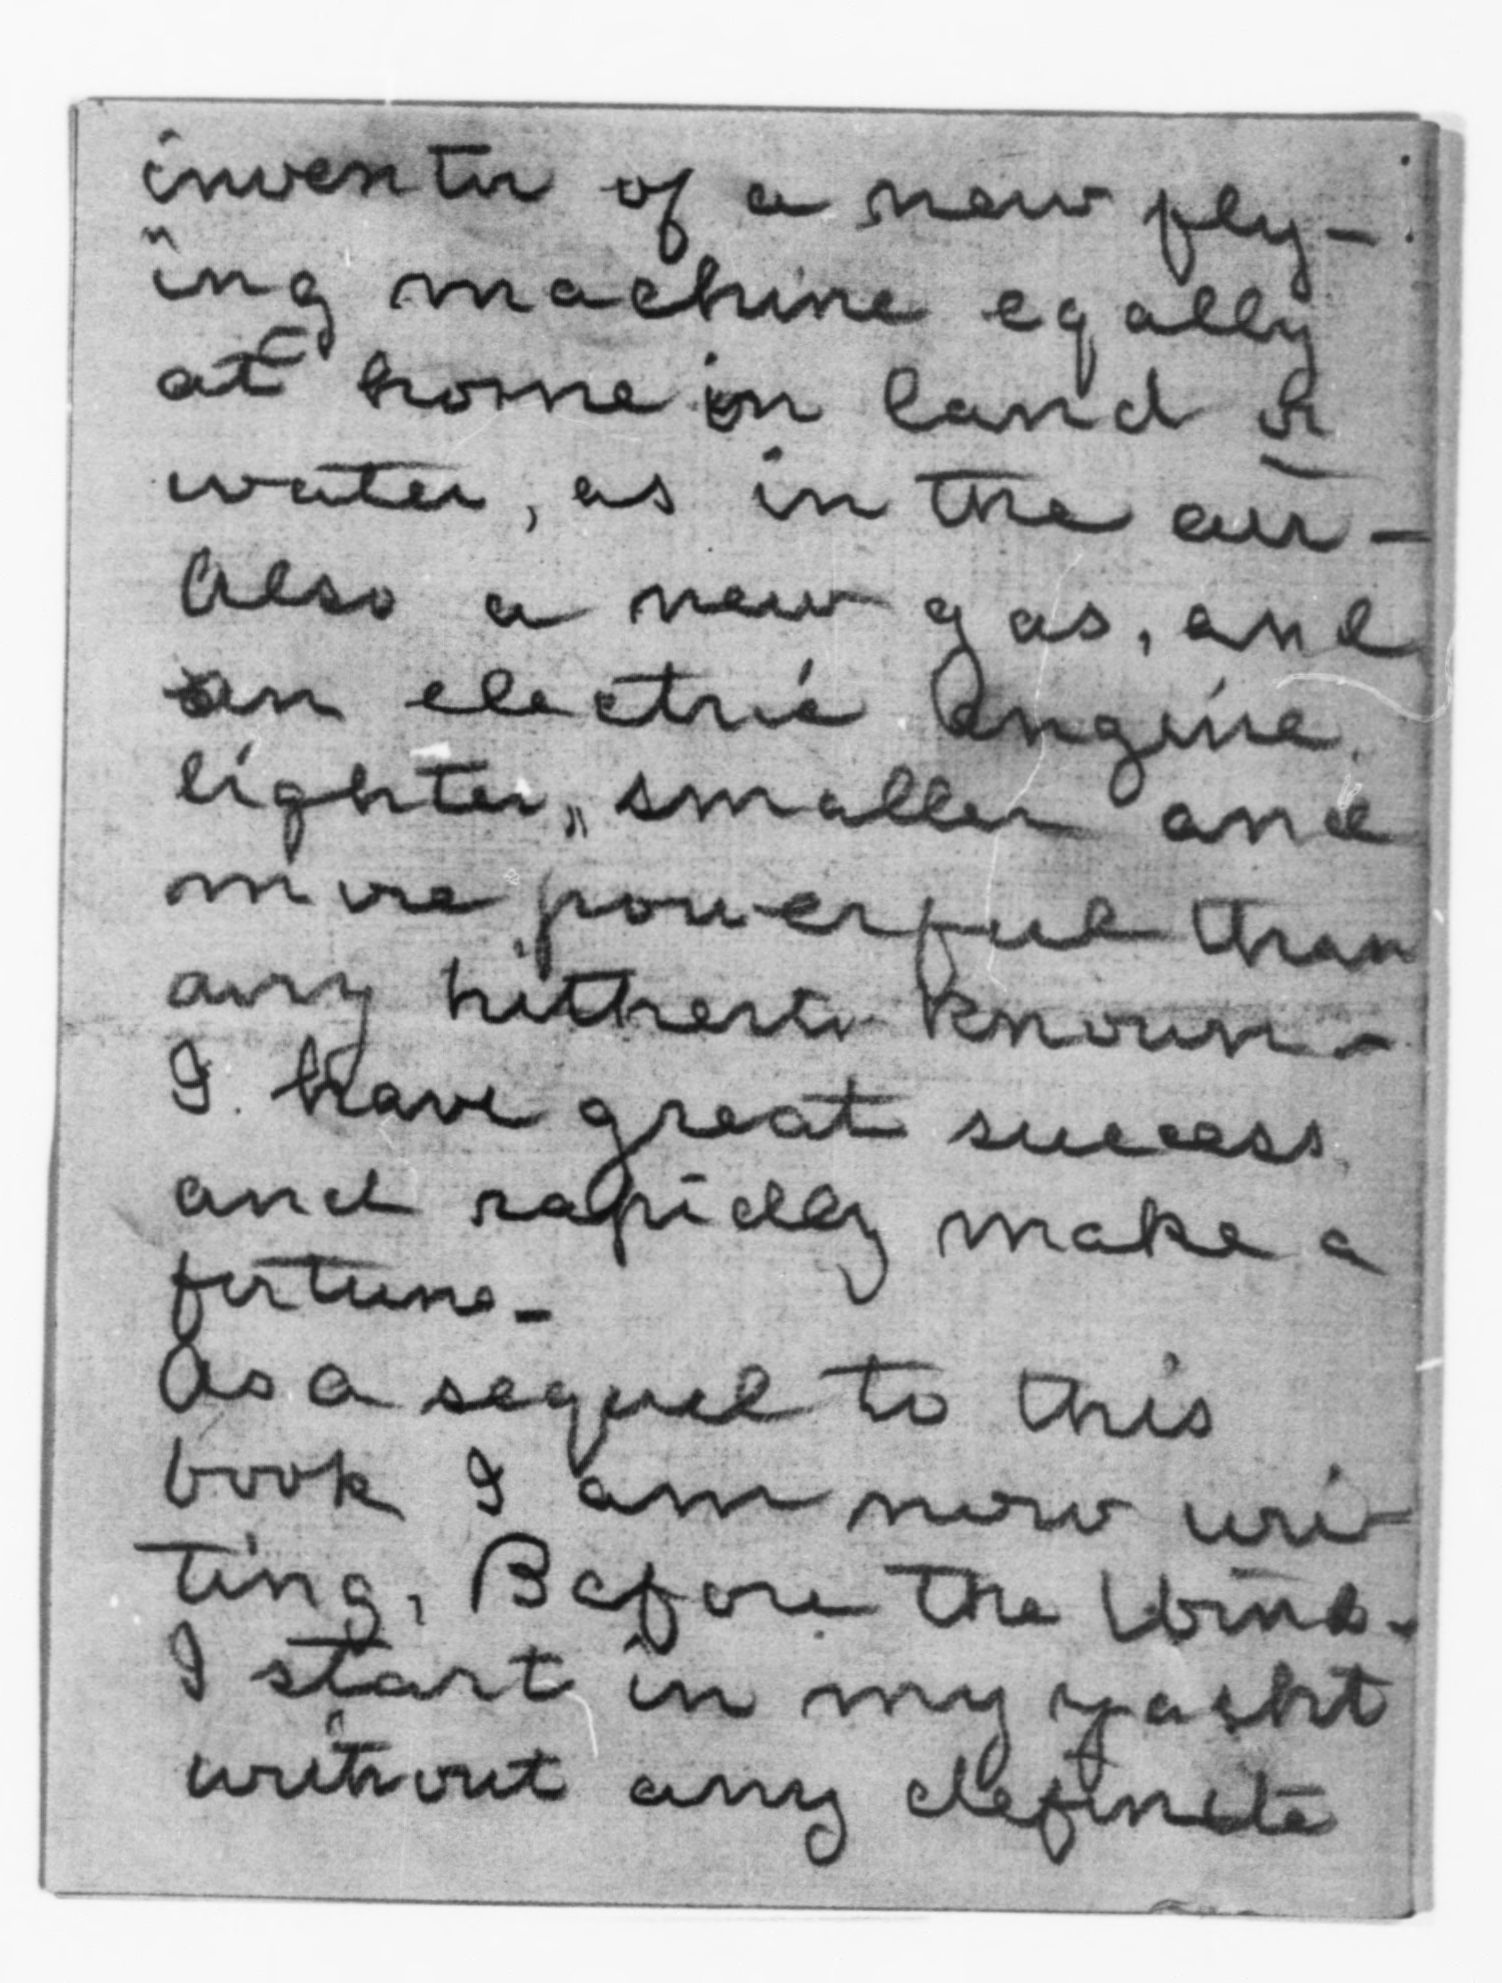 inventor of a new fly-
ing machine eqally
at home in land or
water, as in the air -
Also a new gas, and
an electric Engine
lighter, smaller and
more powerful than
any hitherto known -
I have great success
and rapidly make a
fortune -
As a sequel to this
book I am now wri-
ting, Before the Wind -
I start in my yacht
without any definite